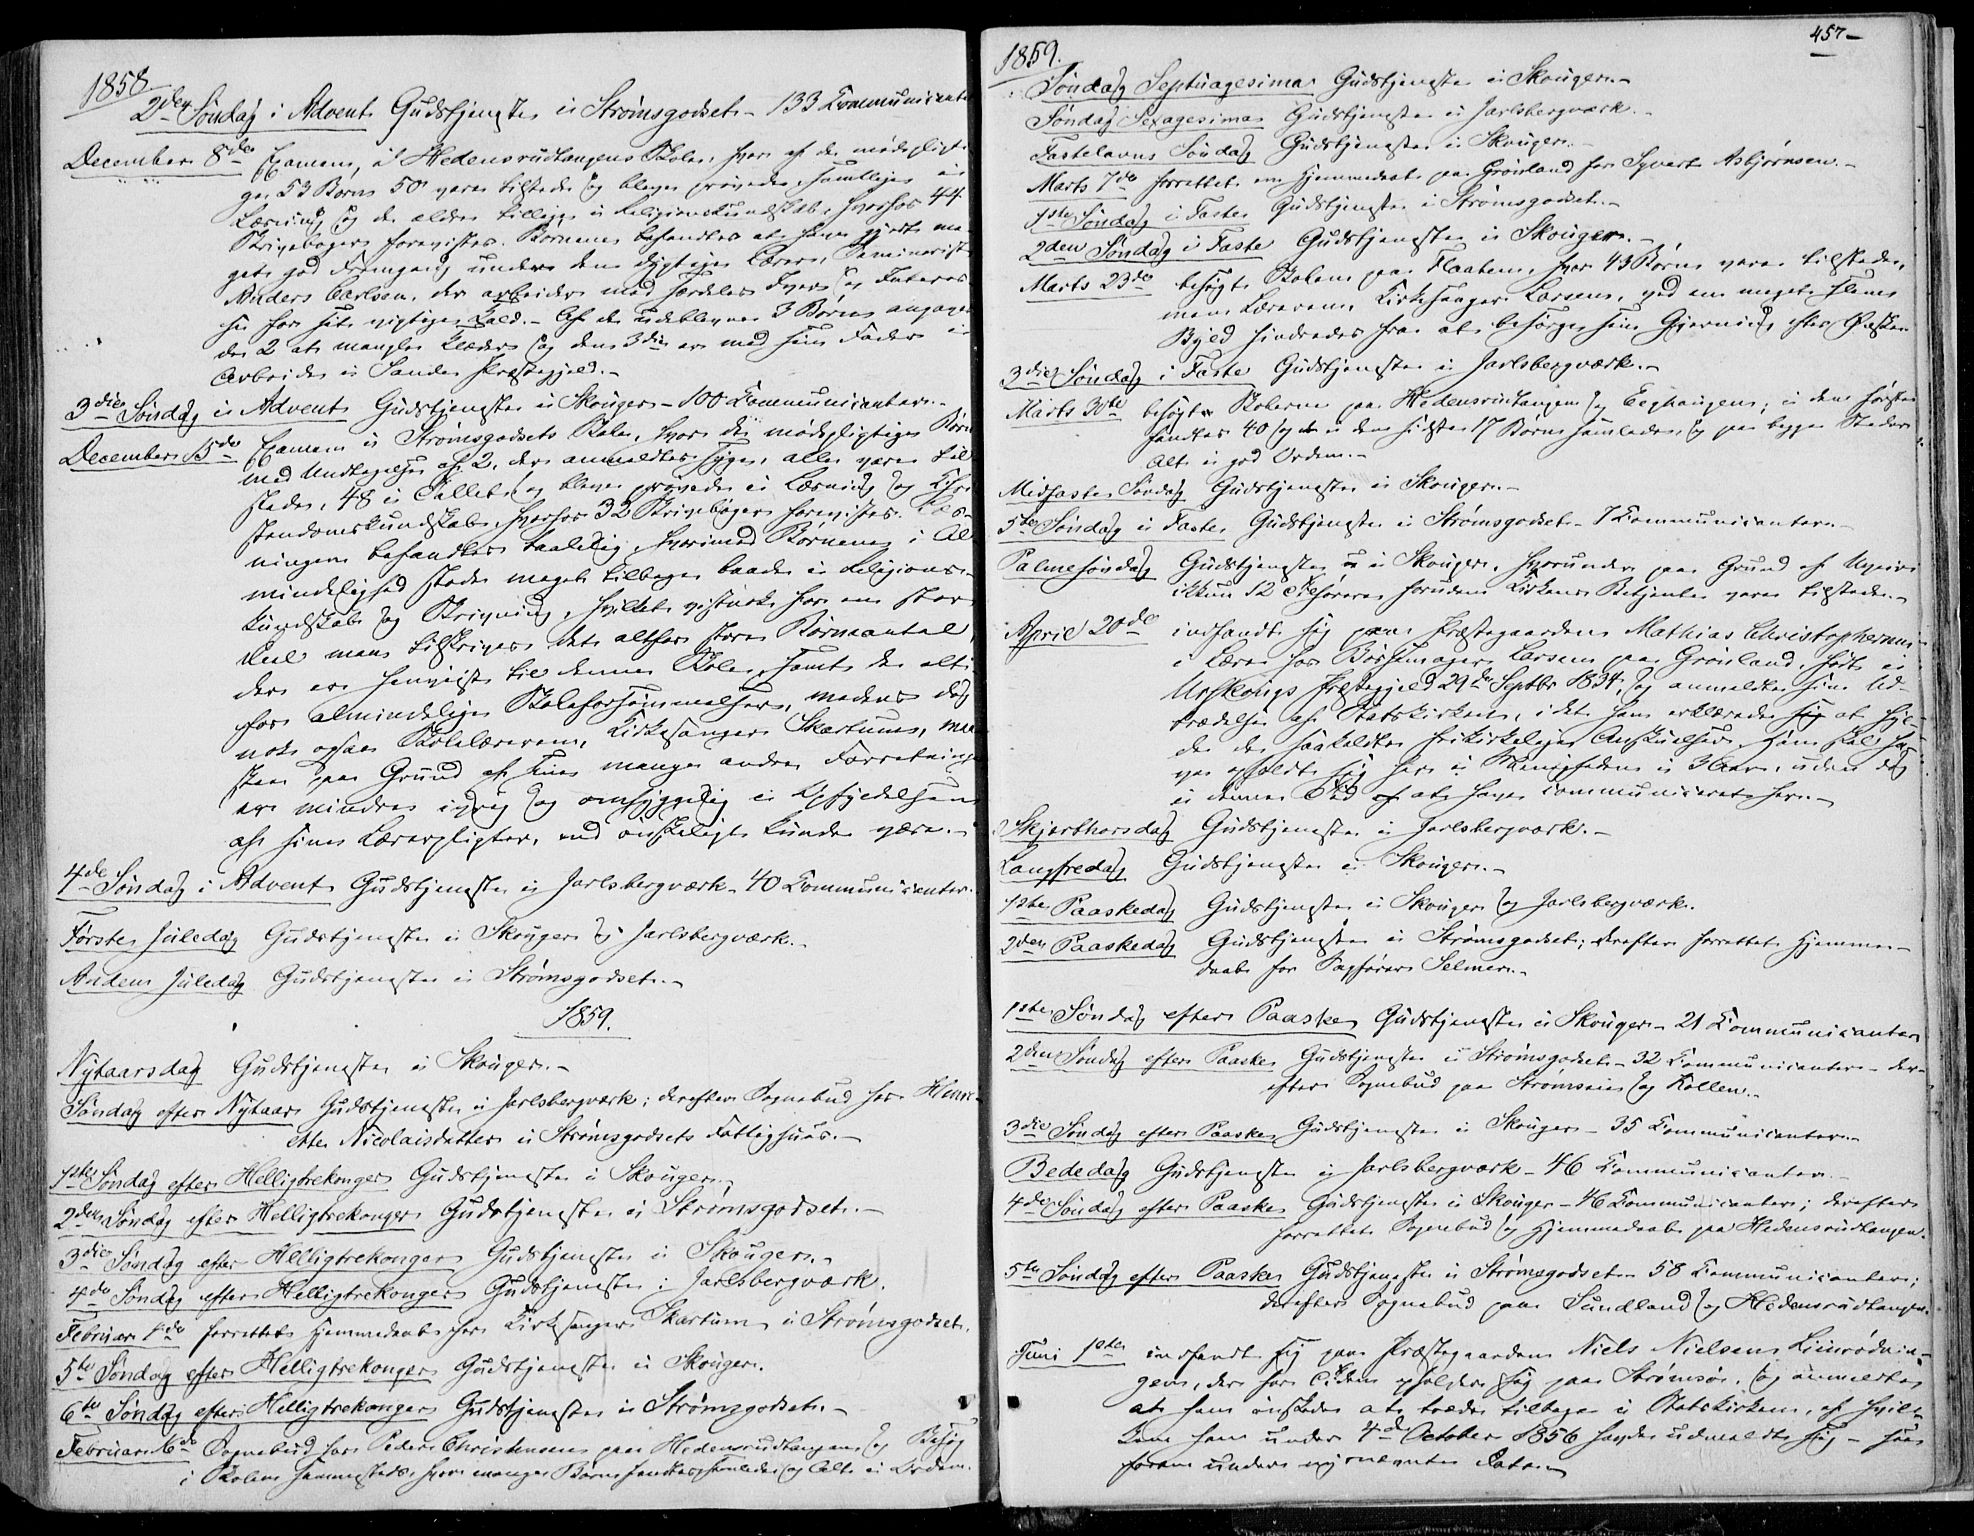 1858
2den Søndag i Advent Gudstjeneste i Strømsgodset - 133 Communicanter
December 8de Examen i Hedensrudtangens Skole, hvor af de mødepligti-
ge 53 Børn 50 vare tilstede og bleve prøvede samtlige i
Læsning og de ældre tillige i Religionskundskab, hvorhos 44
Skrivebøger forevistes. Børnene befandtes at have gjort me-
get god Fremgang under den dygtige Lærer, Seminarist
Anders Carlsen, der arbeider med særdeles Iver og Interes-
se for sit vigtige Kald. - Af de udeblevne 3 Børn angaves
de 2 at mangle Klæder og den 3die er med sin Fader i
Arbeide i Sande Præstegjeld. -
3die Søndag i Advent Gudstjeneste i Skouger - 100 Communicanter. -
December 15de Examen i Strømsgodsets Skole, hvor de mødepligtige Børn
med Undtagelse af 2, der anmeldtes syge, alle vare til
stede, 48 i Tallet, og bleve prøvede i Læsning og Chri-
stendomskundskab, hvorhos 32 Skrivebøger forevistes. Læs-
ningen befandtes taalelig, hvorimod Børnene i Al
mindelighed stode meget tilbage baade i Religions-
kundskab og Skrivning, hvilket vistnok for en stor
Deel maa tilskrives det altfor store Børneantal
der er henvist til denne Skole, samt de alt
for almindelige Skoleforsømmelser, medens dog
nok ogsaa Skolelæreren, Kirkesanger Skartum, maa
skee paa Grund af sine mange andre Forretninger
er mindre ivrig og omhyggelig i Opfyldelsen
af sine Lærerpligter, end ønskeligt kunde være. -
4de Søndag i Advent Gudstjeneste i Jarlsbergværk - 40 Communicanter.
Første Juledag Gudstjeneste i Skouger og Jarlsbergværk. -
Anden Juledag Gudstjeneste i Strømsgodset. -
1859.
Nytaarsdag Gudstjeneste i Skouger. -
Søndag efter Nytaar Gudstjeneste i Jarlsbergværk; derefter Sognebud hos Henri-
ette Nicolaisdatter i Strømsgodsets Fattighuus. -
1ste Søndag efter Helligtrekonger Gudstjeneste i Skouger. -
2den Søndag efter Helligtrekonger Gudstjeneste i Strømsgodset. -
3die Søndag efter Helligtrekonger Gudstjeneste i Skouger. -
4de Søndag efter Helligtrekonger Gudstjeneste i Jarlsbergværk.
Februar forrettet Hjemmedaab hos Kirkesanger Skartum i Strømsgodset.
5te Søndag efter Helligtrekonger Gudstjeneste i Skouger.
6te Søndag efter Helligtrekonger Gudstjeneste i Strømsgodset. -
Februar 16de Sognebud hos Peder Christensen paa Hedensrudtangen, og Besøg
i Skolen sammesteds, hvor mange Børn fandtes samlede og Alt i Orden.
457 -
1859.
Søndag Septuagesima Gudstjeneste i Skouger. -
Søndag Sexagesima Gudstjeneste i Jarlsbergværk. -
Fastelavns Søndag Gudstjeneste i Skouger. -
Marts 7de forrettet en Hjemmedaab paa Grønland hos Syvert Asbjørnsen. -
1ste Søndag i Faste Gudstjeneste i Strømsgodset. -
2den Søndag i Faste Gudstjeneste i Skouger. -
Marts 23de besøgt Skolen paa Flaaten, hvor 43 Børn vare tilstede,
men Læreren, Kirkesanger Larsen, ved en meget slem
Byld hindredes fra at besørge sin Gjerning efter Ønske.
3die Søndag i Faste Gudstjeneste i Jarlsbergværk. -
Marts 30te besøgt Skolerne paa Hedensrudtangen og Eeghougen; i den første
fandtes 40 og i den sidste 17 Børn samlede, og paa begge Steder
Alt i god Orden. -
Midfaste Søndag Gudstjeneste i Skouger. -
5te Søndag i Faste Gudstjeneste i Strømsgodset - 7 Communicanter. -
Palmesøndag Gudstjeneste i Skouger, hvorunder paa Grund af Uveir
ikkun 12 Tilhørere foruden Kirkens Betjente vare tilstede. -
April 20de indfandt sig paa Præstegaarden Mathias Christophersen
i Lære hos Børstmager Larsen paa Grønland, født i
Præstegjeld 29de Septbr 1834, og anmeldte sin Ud-
trædelse af Statskirken, idet han erklærede sig at hyl-
de de saakaldte frikirkelige Anskuelser. Han skal hav
ve opholdt sig her i Menigheden i 3 Aar, uden dog
i denne Tid at have communiceret her. -
Skjerthorsdag Gudstjeneste i Jarlsbergværk. -
Langfredag Gudstjeneste i Skouger. -
1ste Paaskedag Gudstjeneste i Skouger og Jarlsbergværk.
2den Paaskedag Gudstjeneste i Strømsgodset; derefter forrettet Hjemme-
daab for Sagfører Selmer. -
1ste Søndag efter Paaske Gudstjeneste i Skouger - 21 Communicanter
2den Søndag efter Paaske Gudstjeneste i Strømsgodset - 32 Communicanter - der-
efter Sognebud paa Strømsøe og Kollen. -
3die Søndag efter Paaske Gudstjeneste i Skouger - 35 Communicanter. -
Bededag Gudstjeneste i Jarlsbergværk - 46 Communicanter. -
4de Søndag efter Paaske Gudstjeneste i Skouger - 46 Communicanter; derefter
forrettet Sognebud og Hjemmedaab paa Hedensrudtangen.
5te Søndag efter Paaske Gudstjeneste i Strømsgodset - 58 Communicanter;
derefter Sognebud paa Sundland og Hedensrudtangen.
Juni 1ste indfandt sig paa Præstegaarden Niels Nielsen
gen, der for Tiden opholder sig paa Strømsø, og anmeldte,
at han ønskede at træde tilbage i Statskirken, af hvil-
ken han under 4de October 1856 havde udmeldt sig -
foran under nysnævnte Dato. -